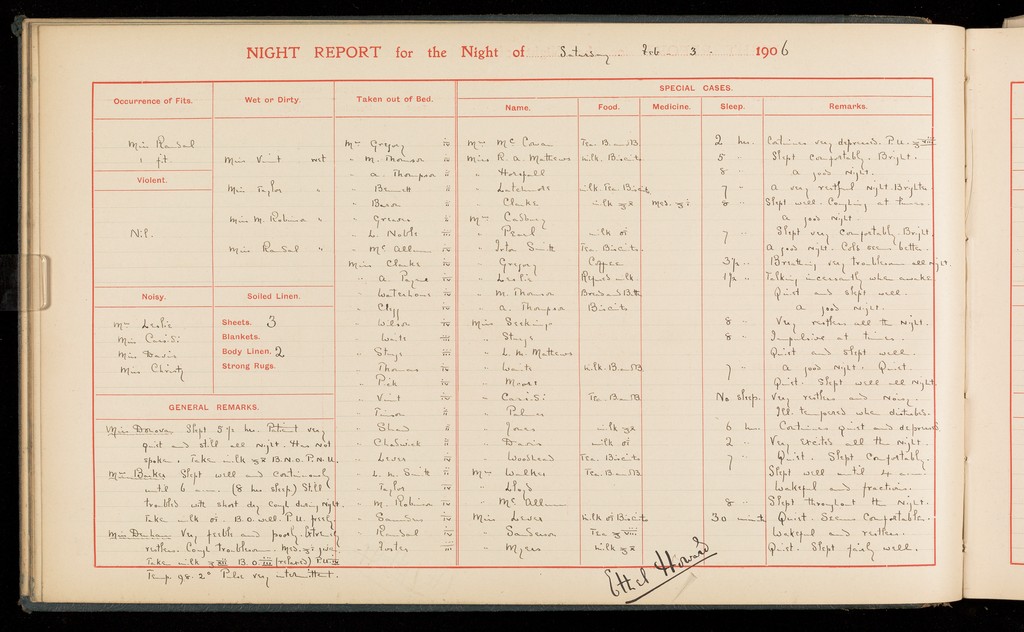 NIGHT REPORT for the Night of Saturday Feb 3. 1906
Occurrence of Fits.
Miss Randal
1 fit.
Violent.
Nil.
Noisy.
Mrs Leslie
Miss Cassidi
Miss Davis
Miss Christy
Wet or Dirty.
Miss Vint wet
Miss Taylor "
Miss M. Robinson "
Miss Randal "
Soiled Linen.
Sheets. 3
Blankets.
Body Linen. 2
Strong Rugs.
GENERAL REMARKS.
Miss Donovan Slept 5½ hrs. Patient very
quiet and still all night. Has not
spoken. Take milk ℥x B.N.O. P.N.U.
Mrs Barker Slept well and continuously
until 6 a.m. (8 hrs sleep) Still
troubled with short dry cough during night.
Take milk B.O. well. P.U. freely
Miss Denham Very feeble and poorly. Extremely
restless. Cough troublesome. Med. given
Take milk B.O. iii (relaxed) P.U.
Temp. 98.2° Pulse very intermittent.
Taken out of Bed.
Mrs Gregory iv
" M. Thomson iv
" A. Thompson ii
" Bennett ii
" Bacon ii
" Greaves
" L. Noble iii
" McAllum iv
Miss Clarke iv
" A. Payne iv
" Waterhouse iv
" Cliff iv
" Wilson iv
" Waite iii
" Stays iii
" Thomas iv
" Pick iv
" Vint iv
" Timson ii
" Shad ii
" Chadwick ii
" Lewes iv
" L. M. Smith ii
" Taylor iv
" M. Robinson iv
" Saunders iv
" Randal iv
" Foster iii
SPECIAL CASES.
Name. Food. Medicine. Sleep. Remarks.
Mrs McCowan Tea. B. and B. 2 hrs. Continues very depressed. P.U. ℥viii
Miss R. A. Mathews milk. Biscuits 5 " Slept comfortably. Bright.
" Horsfall 8 " A good night.
" Latchmore milk. Tea. Biscuits 7 " A very restful night. Brighter.
" Clarke milk ℥x med. ℥i 8 " Slept well. Coughing at times.
Mrs Cadbury A good night.
" Pearl milk 7 " Slept very comfortably. Bright.
" Irton Smith Tea. Biscuits. A good night. Cold seems better.
" Gregory Coffee 3½ " Breathing very troublesome all night.
" Leslie Refused milk. 1½ " Talking incessantly when awake
" M. Thomson Bread and Butter Quiet and slept well.
" A. Thompson Biscuits A good night.
Miss Seeking 8 " Very restless all the night.
" Stays 8 " Impulsive at times.
" L. M. Mathews Quiet and slept well.
" Waite milk. B. and B. 7 " A good night. Quiet.
" Moore Quiet. Slept well all night.
" Cassidi Tea. B. and B. No sleep. Very restless and noisy.
" Palmer Ill tempered when disturbed.
" Jones milk ℥x 6 hrs. Continues quiet and depressed.
" Davis milk 2 " Very excited all the night.
" Woodhead Tea. Biscuits. 7 " Quiet. Slept comfortably.
Mrs Walker Tea. B. and B. Slept well until 4 a.m.
" Lloyd Wakeful and fractious.
" McAllum 8 " Slept throughout the night.
Miss Lewes milk Biscuits 30 minutes Quiet. Seems comfortable.
" Sanderson Tea ℥viii Wakeful and restless.
" Myers milk ℥x Quiet. Slept fairly well.
Ethel Howard